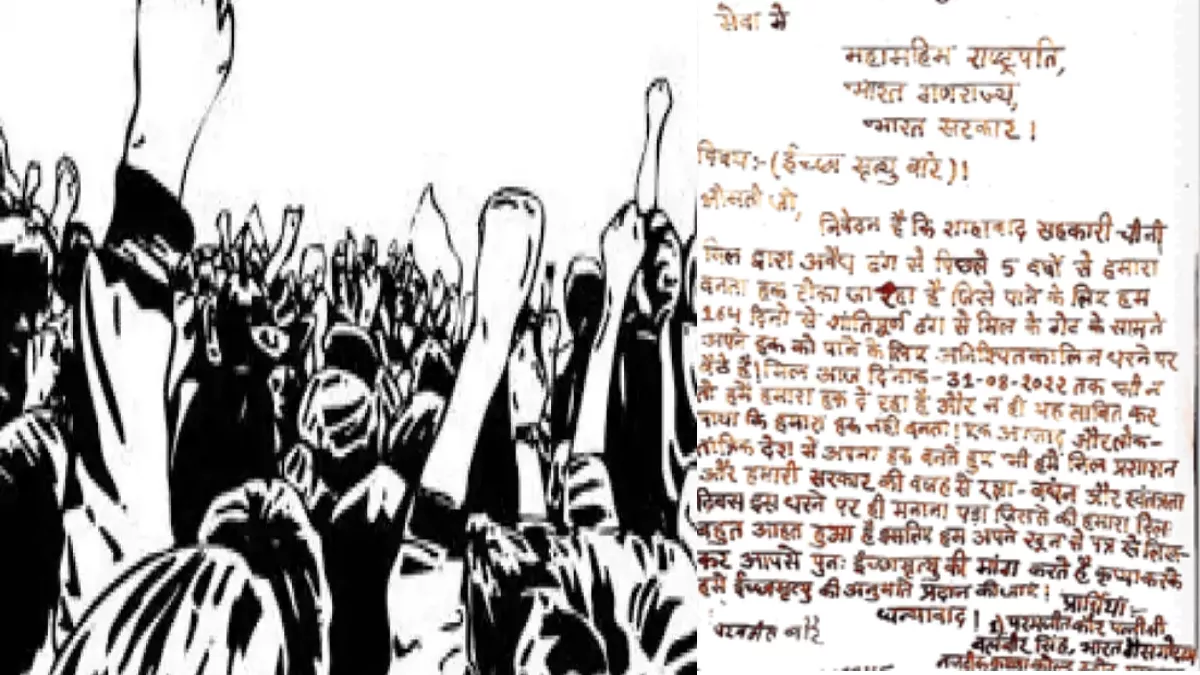 सेवा मे
महामहिम राष्ट्रपति,
भारत गणराज्य,
भारत सरकार।
विषय:-(ईच्छा मृत्यु बारे)।
श्रीमती जी,
निवेदन है कि शाहाबाद सहकारी चीनी
मिल द्वारा अवैध ढंग से पिछले 5 वर्षो से हमारा
बनता हक रोका जा रहा है जिसे पाने के लिए हम
164 दिनो से शांतिपूर्ण ढंग से मिल के गेट के सामने
अपने हक को पाने के लिए अनिश्चितकालिन धरने पर
बैठे है। मिल आज दिनांक-31-08-2022 तक भी न
तो हमें हमारा हक दे रहा है और न ही यह साबित कर
पाया कि हमारा हक नही बनता। एक आजाद और लोक-
तांत्रिक देश मे अपना हक बनते हुए भी हमें मिल प्रशाशन
और हमारी सरकार की वजह से रक्षा-बंधन और स्वतंत्रता
दिवस इस धरने पर ही मनाना पड़ा जिससे की हमारा दिल
बहुत आहत हुआ है इसलिए हम अपने खून से पत्र से लिख-
कर आपसे पुन: ईच्छामृत्यु की मांग करते है कृप्या करके
हमे ईच्छामृत्यु की अनुमति प्रदान की जाए।
धन्यावाद।
प्रार्थिया:-
1) परमजीत कौर पत्नी श्री
बलबीर सिंह, भारत गैस गोदाम
नजदीक कृष्णा कोल्ड स्टोर
परमजीत कौर